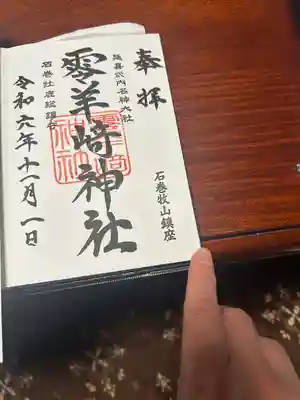 奉拝
石巻牧山鎮座
延喜式内名神大社
零羊崎神社
石巻牡鹿総鎮守
令和六年十一月一日